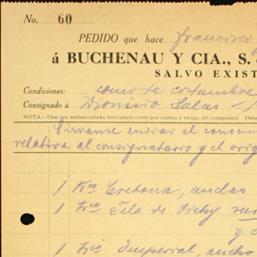 No. 60
PEDIDO que hace Francisco
á BUCHENAU Y CIA., S.
SALVO EXIST
Condiciones: como de costumbre
Consignado á Dionisio Salas
NOTA.—Una vez embarcada la mercancía corre por cuenta y riesgo del comprador. Debe
Sírvanse enviar el consum
relativa al consignatario y el orig
1 Fro Cretona, anclas
1 Fro Tela de Vichy
y c
1 Fro Imperial, ancho